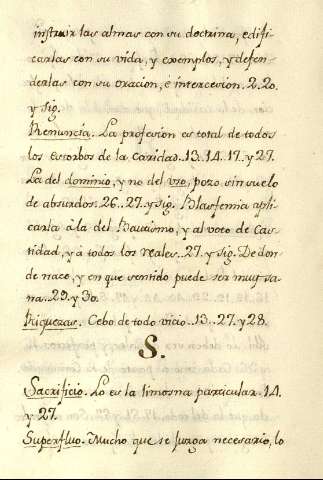 instruir las almas con su doctrina, edifi-
carlas con su vida, y exemplos, y defen-
derlas con su oracion, é intercesion. 2.20.
y sig.
Renuncia. La profesion es total de todos
los estorbos de la caridad. 13. 14. 17. y 27.
La del dominio, y no del uso, pozo sin suelo
de absurdos. 26. 27. y sig. Blasfemia apli-
carla á la del Bautismo, y al voto de Cas-
tidad, y á todos los reales. 27. y sig. De don-
de nace, y en que sentido puede ser muy sa-
na. 29. y 30.
Riquezas. Cebo de todo vicio. 13. 27. y 28.
S.
Sacrificio. Lo es la limosna particular. 14.
y 27.
Superfluo. Mucho que se juzga necesario, lo